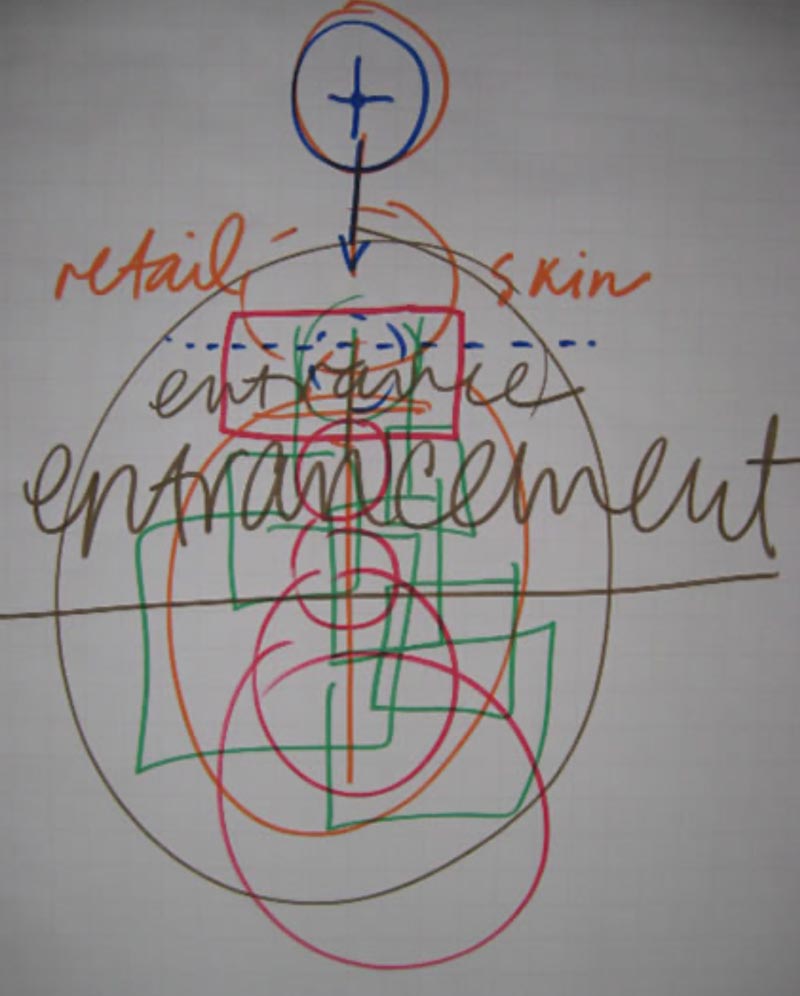 retail - skin
entrance
entrancement